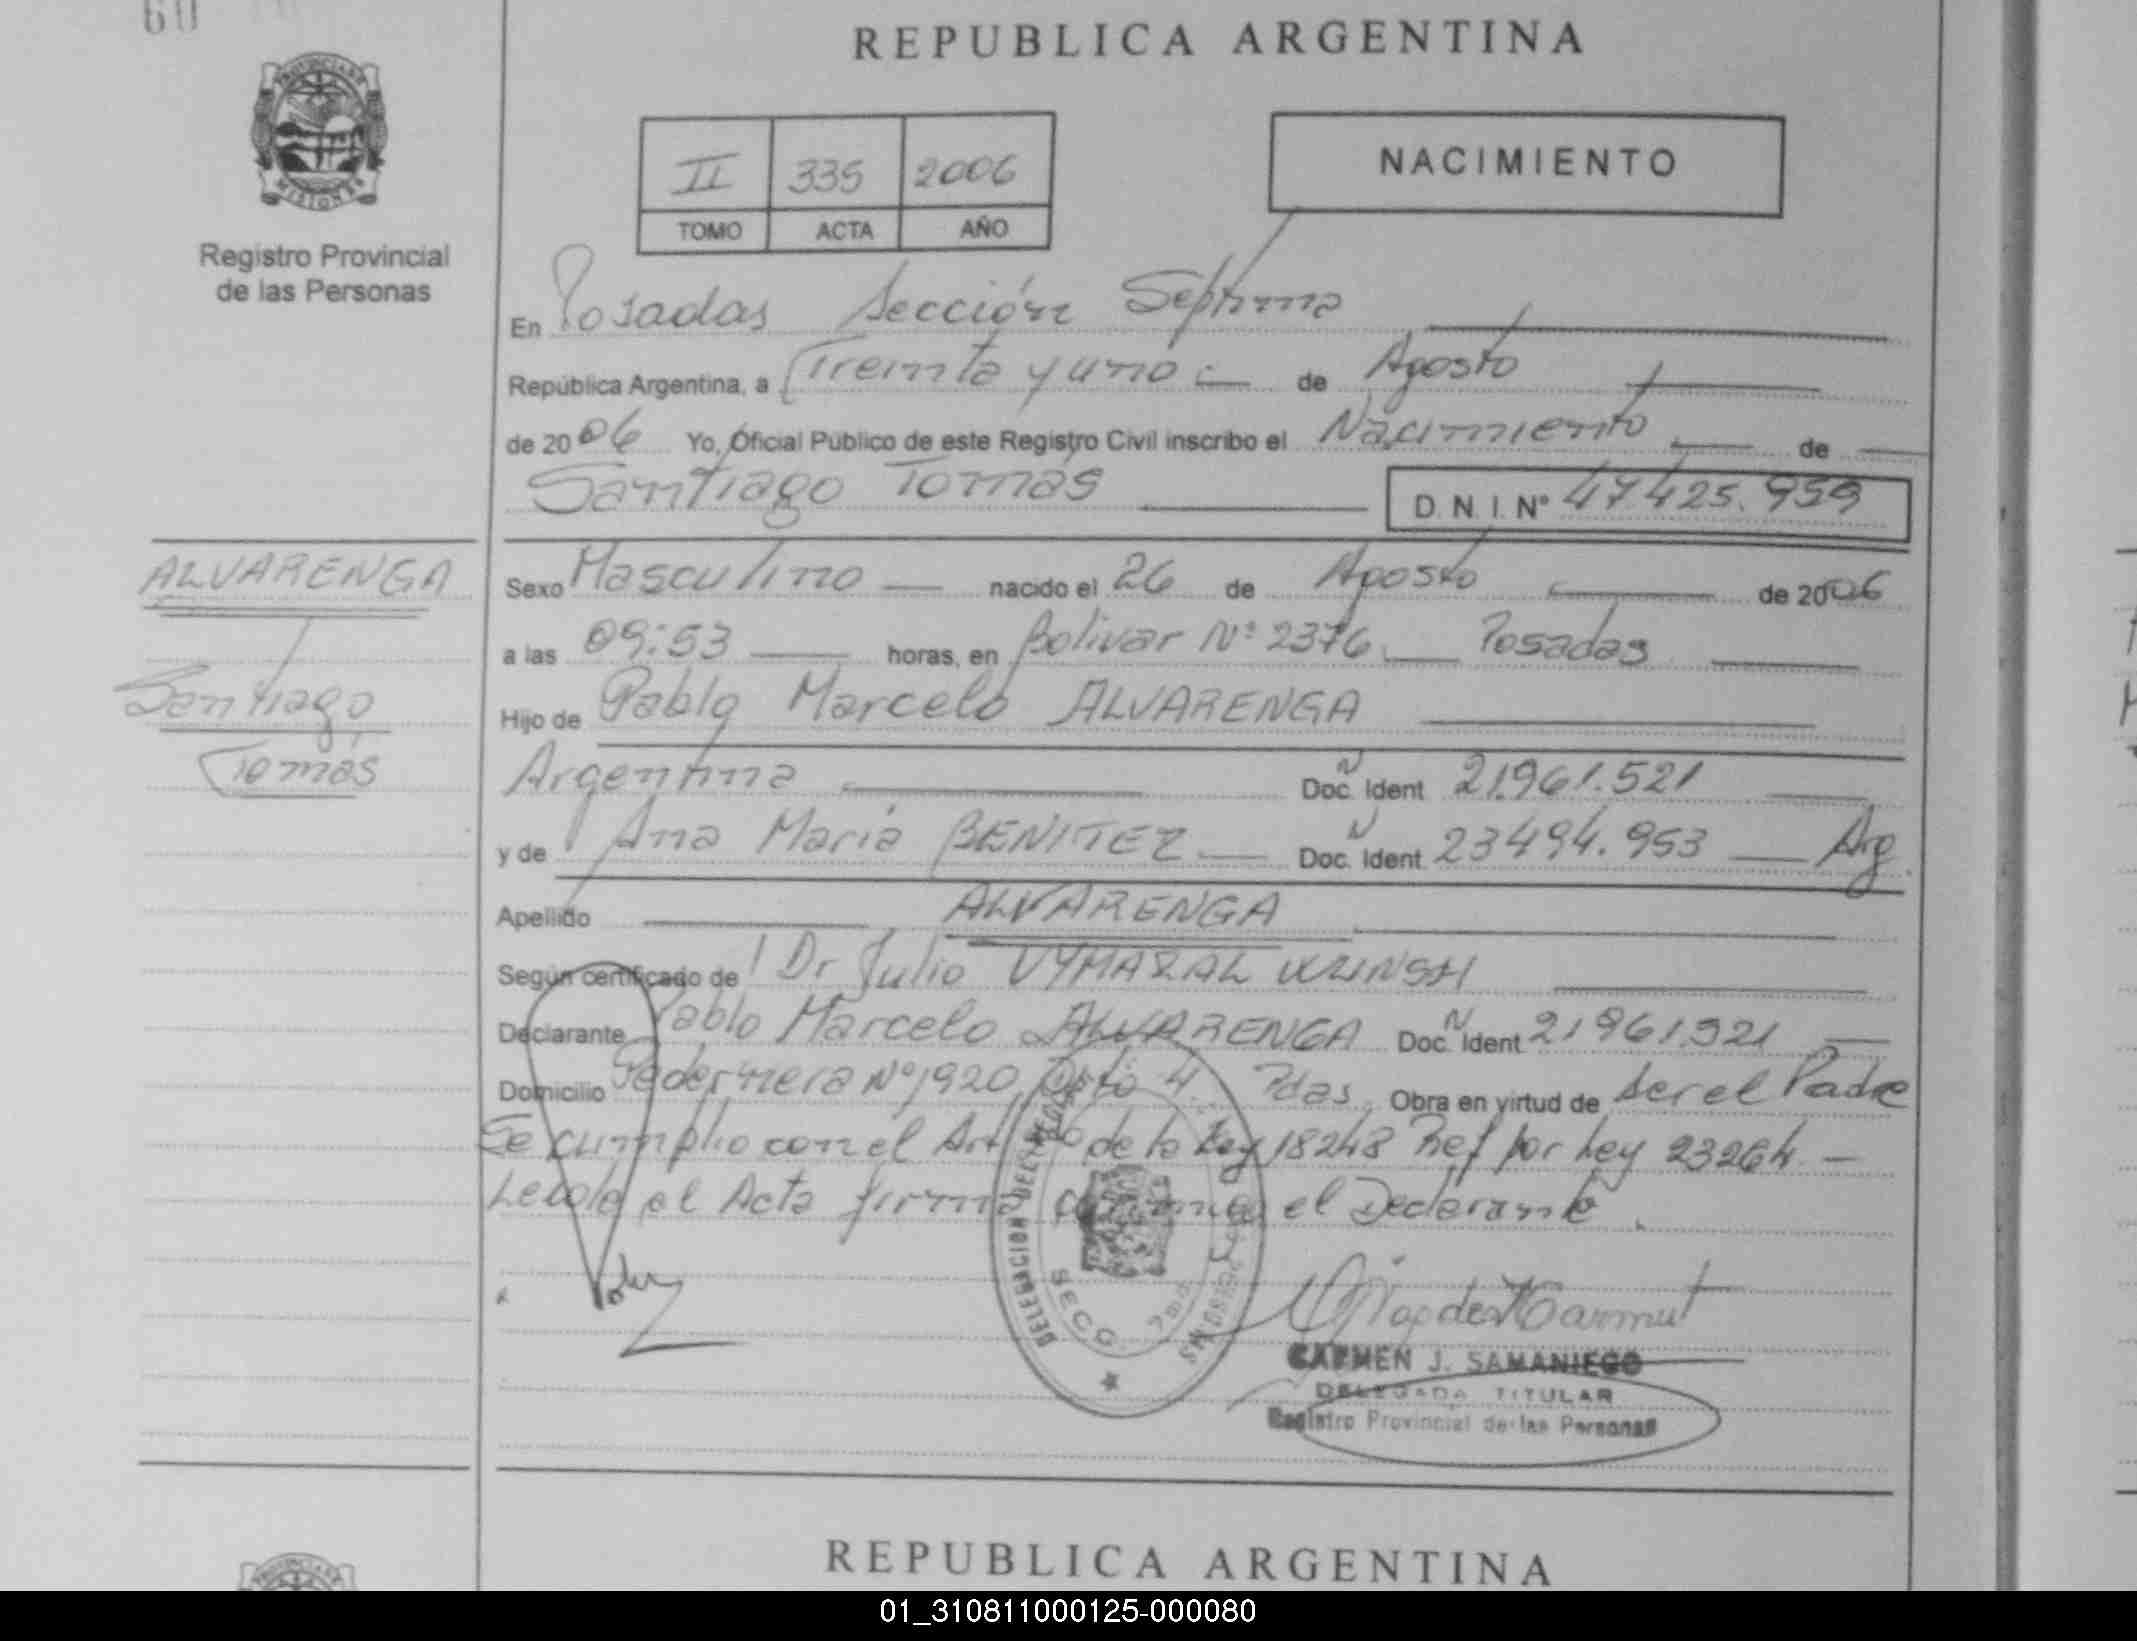 60
REPUBLICA ARGENTINA
PROVINCIA DE
MISIONES
Registro Provincial
de las Personas
II 335 2006
TOMO ACTA AÑO
NACIMIENTO
En Posadas Sección Séptima
República Argentina, a Treinta y uno de Agosto
de 2006 Yo, Oficial Público de este Registro Civil inscribo el Nacimiento de
Santiago Tomás D.N.I. Nº 47.425.959
ALVARENGA
Santiago
Tomás
Sexo Masculino nacido el 26 de Agosto de 2006
a las 09:53 horas, en Bolivar Nº 2376 Posadas
Hijo de Pablo Marcelo ALVARENGA
Argentina Doc. Ident 21.961.521
y de Ana María BENITEZ Doc. Ident. 23494.953 Arg.
Apellido ALVARENGA
Según certificado de Dr Julio VYMAZAL WUNSH
Declarante Pablo Marcelo ALVARENGA Doc. Ident 21961521
Domicilio Pedernera Nº 1920, Dpto 4 Pdas. Obra en virtud de ser el Padre
Se cumplio con el Art de la Ley 18248 Ref por Ley 23264
Leida el Acta firma conmigo el Declarante
DELEGACION DEL REGISTRO
SECC
CARMEN J. SAMANIEGO
DELEGADA TITULAR
Registro Provincial de las Personas
REPUBLICA ARGENTINA
01_310811000125-000080